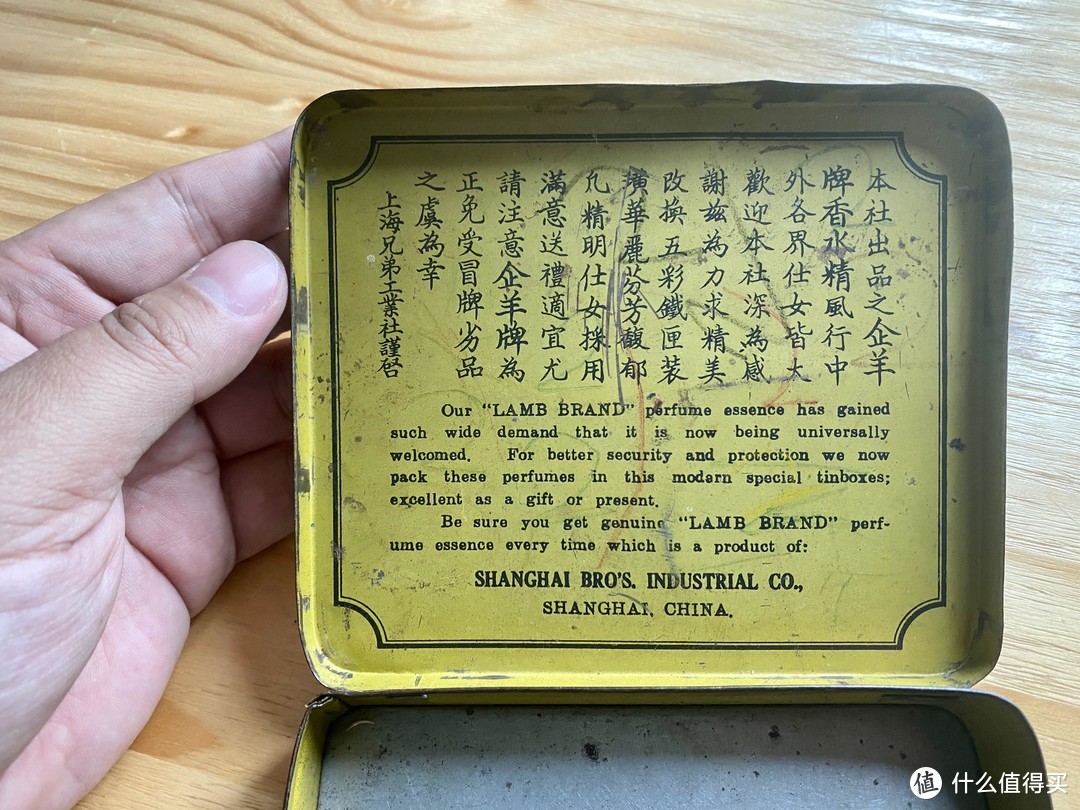 本社出品之企羊
牌香水精風行中
外各界仕女皆大
歡迎本社深為感
謝茲為力求精美
改換五彩鐵匣装
璜華麗芬芳馥郁
凢精明仕女採用
滿意送禮適宜尤
請注意企羊牌為
正免受冒牌劣品
之虞為幸
上海兄弟工業社謹啓
Our "LAMB BRAND" perfume essence has gained
such wide demand that it is now being universally
welcomed. For better security and protection we now
pack these perfumes in this modern special tinboxes;
excellent as a gift or present.
Be sure you get genuine "LAMB BRAND" perf-
ume essence every time which is a product of:
SHANGHAI BRO'S. INDUSTRIAL CO.,
SHANGHAI, CHINA.
值 什么值得买